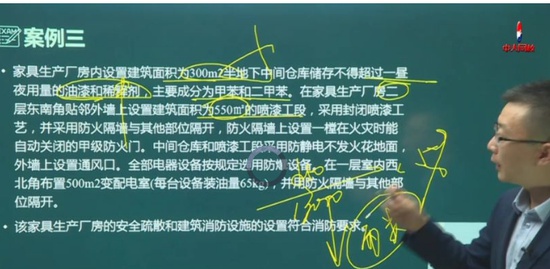 案例三
• 家具生产厂房内设置建筑面积为300m2半地下中间仓库储存不得超过一昼
夜用量的油漆和稀释剂，主要成分为甲苯和二甲苯。在家具生产厂房二
层东南角贴邻外墙上设置建筑面积为550㎡的喷漆工段，采用封闭喷漆工
艺，并采用防火隔墙与其他部位隔开，防火隔墙上设置一樘在火灾时能
自动关闭的甲级防火门。中间仓库和喷漆工段采用防静电不发火花地面，
外墙上设置通风口。全部电器设备按规定选用防爆设备。在一层室内西
北角布置500m2变配电室(每台设备装油量65kg)，并用防火隔墙与其他部
位隔开。
• 该家具生产厂房的安全疏散和建筑消防设施的设置符合消防要求。